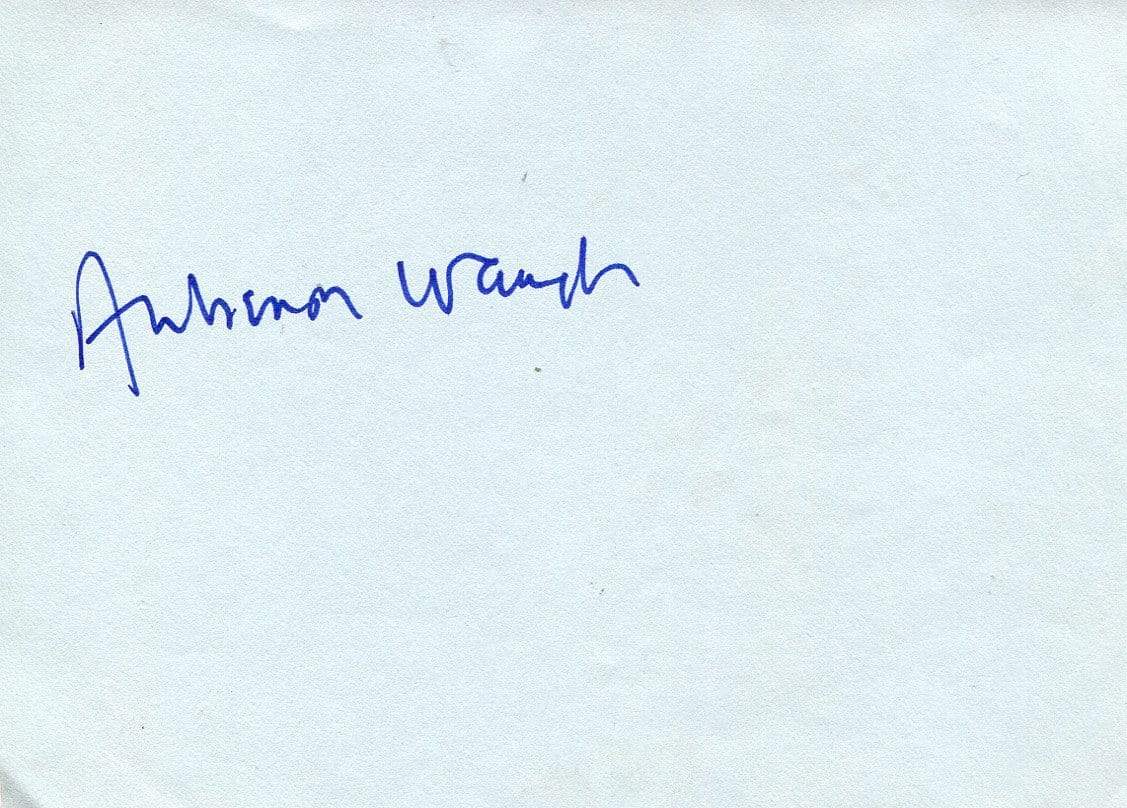 Auberon Waugh